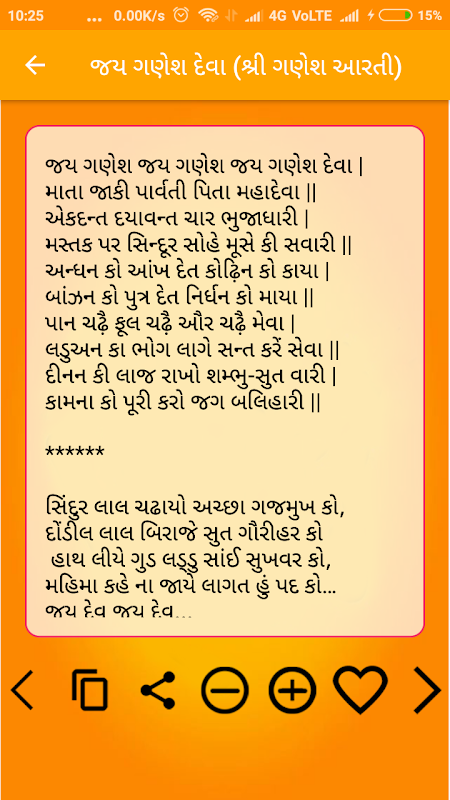 10:25 ... 0.00K/s 4G VoLTE 15%
જય ગણેશ દેવા (શ્રી ગણેશ આરતી)
જય ગણેશ જય ગણેશ જય ગણેશ દેવા |
માતા જાકી પાર્વતી પિતા મહાદેવા ||
એકદન્ત દયાવન્ત ચાર ભુજાધારી |
મસ્તક પર સિન્દૂર સોહે મૂસે કી સવારી ||
અન્ધન કો આંખ દેત કોઢ઼િન કો કાયા |
બાંઝન કો પુત્ર દેત નિર્ધન કો માયા ||
પાન ચઢ઼ૈ ફૂલ ચઢ઼ૈ ઔર ચઢ઼ૈ મેવા |
લડુઅન કા ભોગ લાગે સન્ત કરેં સેવા ||
દીનન કી લાજ રાખો શમ્ભુ-સુત વારી |
કામના કો પૂરી કરો જગ બલિહારી ||
******
સિંદુર લાલ ચઢાયો અચ્છા ગજમુખ કો,
દોંડીલ લાલ બિરાજે સુત ગૌરીહર કો
હાથ લીયે ગુડ લડ્ડુ સાંઈ સુખવર કો,
મહિમા કહે ના જાયે લાગત હું પદ કો...
જય દેવ જય દેવ...